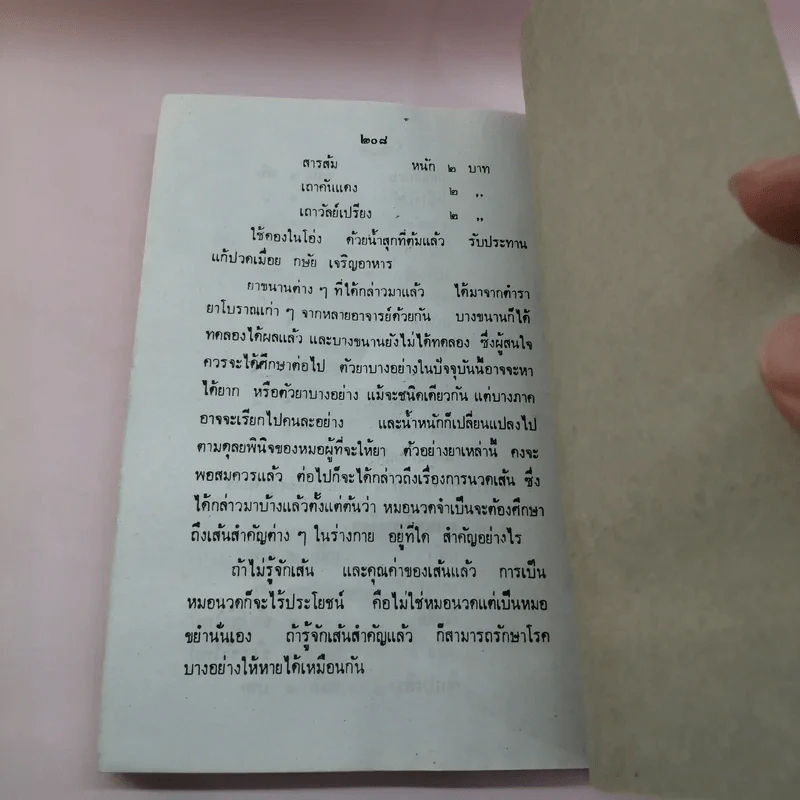 ๒๐๘
สารส้ม หนัก ๒ บาท
เถาคันแดง ๒ ,,
เถาวัลย์เปรียง ๒ ,,
ใช้ดองในโอ่ง ด้วยน้ำสุกที่ต้มแล้ว รับประทาน
แก้ปวดเมื่อย กษัย เจริญอาหาร
ยาขนานต่าง ๆ ที่ได้กล่าวมาแล้ว ได้มาจากตำรา
ยาโบราณเก่า ๆ จากหลายอาจารย์ด้วยกัน บางขนานก็ได้
ทดลองได้ผลแล้ว และบางขนานยังไม่ได้ทดลอง ซึ่งผู้สนใจ
ควรจะได้ศึกษาต่อไป ตัวยาบางอย่างในปัจจุบันนี้อาจจะหา
ได้ยาก หรือตัวยาบางอย่าง แม้จะชนิดเดียวกัน แต่บางภาค
อาจจะเรียกไปคนละอย่าง และน้ำหนักก็เปลี่ยนแปลงไป
ตามดุลยพินิจของหมอผู้ที่จะให้ยา ตัวอย่างยาเหล่านี้ คงจะ
พอสมควรแล้ว ต่อไปก็จะได้กล่าวถึงเรื่องการนวดเส้น ซึ่ง
ได้กล่าวมาบ้างแล้วตั้งแต่ต้นว่า หมอนวดจำเป็นจะต้องศึกษา
ถึงเส้นสำคัญต่าง ๆ ในร่างกาย อยู่ที่ใด สำคัญอย่างไร
ถ้าไม่รู้จักเส้น และคุณค่าของเส้นแล้ว การเป็น
หมอนวดก็จะไร้ประโยชน์ คือไม่ใช่หมอนวดแต่เป็นหมอ
ขยำนั่นเอง ถ้ารู้จักเส้นสำคัญแล้ว ก็สามารถรักษาโรค
บางอย่างให้หายได้เหมือนกัน